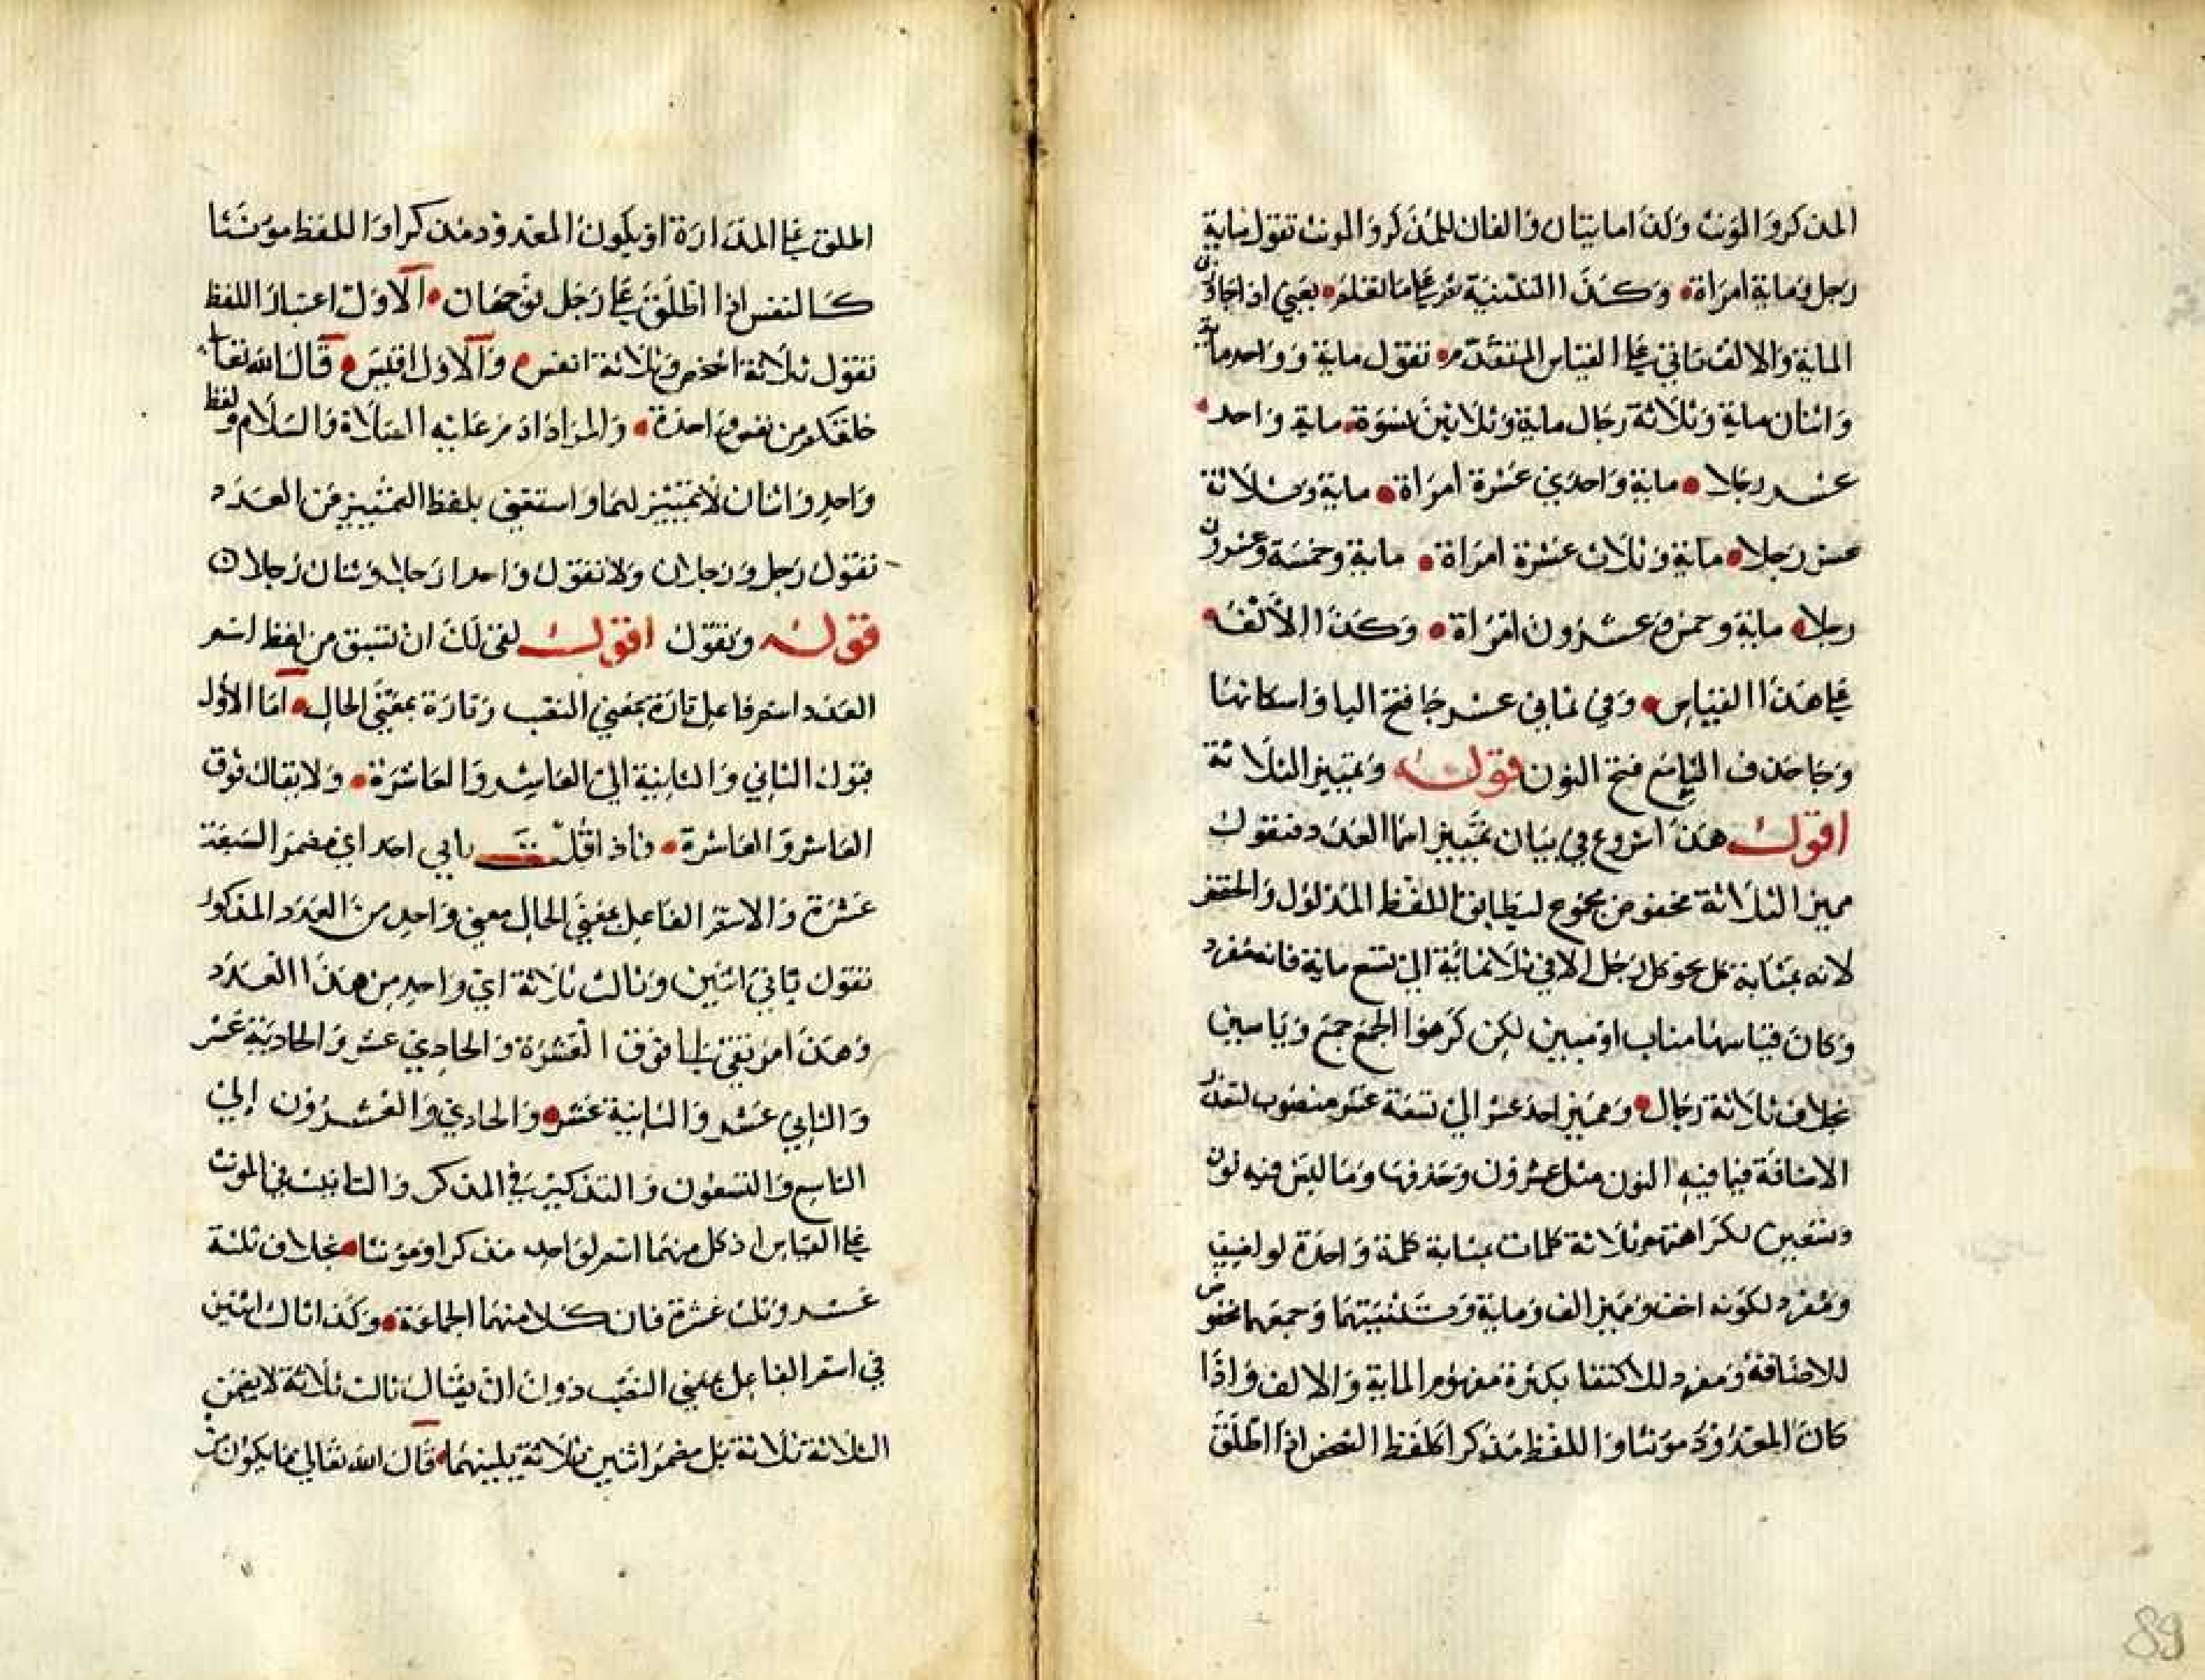 المذكر والمونث وكذا مايتان والفان للمذكر والمونث تقول ماية
رجل وماية امراة وكذا التثنية ثم على ما تقدم يعني اذا جاوز
الماية والالف تاتي على القياس المتقدم تقول ماية وواحد ماية
واثنان ماية وثلاثة رجال ماية وثلاثين نسوة ماية واحد
عشر رجلا ماية واحدي عشرة امراة ماية وثلاثة
عشر رجلا ماية وثلاث عشرة امراة ماية وخمسة وعشرون
رجلا ماية وخمس وعشرون امراة وكذا الالف
على هذا القياس وفي ثماني عشر جا فتح اليا واسكانها
وجا حذف الياء مع فتح النون قوله ومميز الثلاثة
اقول هذا شروع في بيان تمييز اسما العدد فنقول
مميز الثلاثة مخفوض مجموع ليطابق اللفظ المدلول والخفض
لانه بمثابة كل نحو كل رجل الا في ثلاثماية الى تسع ماية فانه مفرد
وكان قياسها مئات او مئين لكن كرهوا الجمع جمع
بخلاف ثلاثة رجال ومميز احد عشر الى تسعة عشر منصوب لتعذر
الاضافة فيما فيه النون مثل عشرون وحذفها وما ليس فيه نون
لكراهتهم ثلاثة كلمات بمثابة كلمة واحدة لو اضيف
ومفرد لكونه اخف ومميز الف وماية وتثنيتهما وجمعهما مخفوض
للاضافة ومفرد للاكتفا بكثرة مفهوم الماية والالف واذا
كان المعدود مونثا واللفظ مذكرا كلفظ الشخص اذا اطلق
اطلق على المدارة او يكون المعدود مذكرا واللفظ مونثا
كالنفس اذا اطلق على رجل فوجهان الاول اعتبار اللفظ
تقول ثلاثة اشخص وثلاثة انفس والاول اقيس قال الله تعالى
خلقكم من نفس واحدة والمراد ادم عليه الصلاة والسلام ولفظ
واحد واثنان لا تمييز لهما واستغني بلفظ التمييز عن العدد
تقول رجل ورجلان ولا تقول واحد رجلا وثنان رجلا
قوله وتقول اقول لغى لك ان تشتق من لفظ اسم
العدد اسم فاعل تارة بمعنى وتارة بمعنى الحال اما الاول
فتقول الثاني والثانية الى العاشر والعاشرة ولا يقال فوق
العاشر والعاشرة فاذا قلت احد اي مضمر السبعة
عشرة والاسم الفاعل بمعنى الحال معنى واحد من العدد المذكور
تقول ثاني اثنين وثالث ثلاثة اي واحد من هذا العدد
وهذا فوق العشرة والحادي عشر والحادية عشر
والثاني عشر والثانية عشر والحادي والعشرون الى
التاسع والتسعون والتذكير في المذكر والتانيث في المونث
على القياس اذ كل منهما اسم لواحد مذكرا او مونثا بخلاف ثلثة
عشر وثلث عشرة فان كلا منهما الجماعة وكذا ثالث اثنين
في اسم الفاعل بمعنى دون ان يقال ثالث ثلاثة
الثلاثة ثلاثة بل اثنين ثلاثة قال الله تعالى ما يكون من